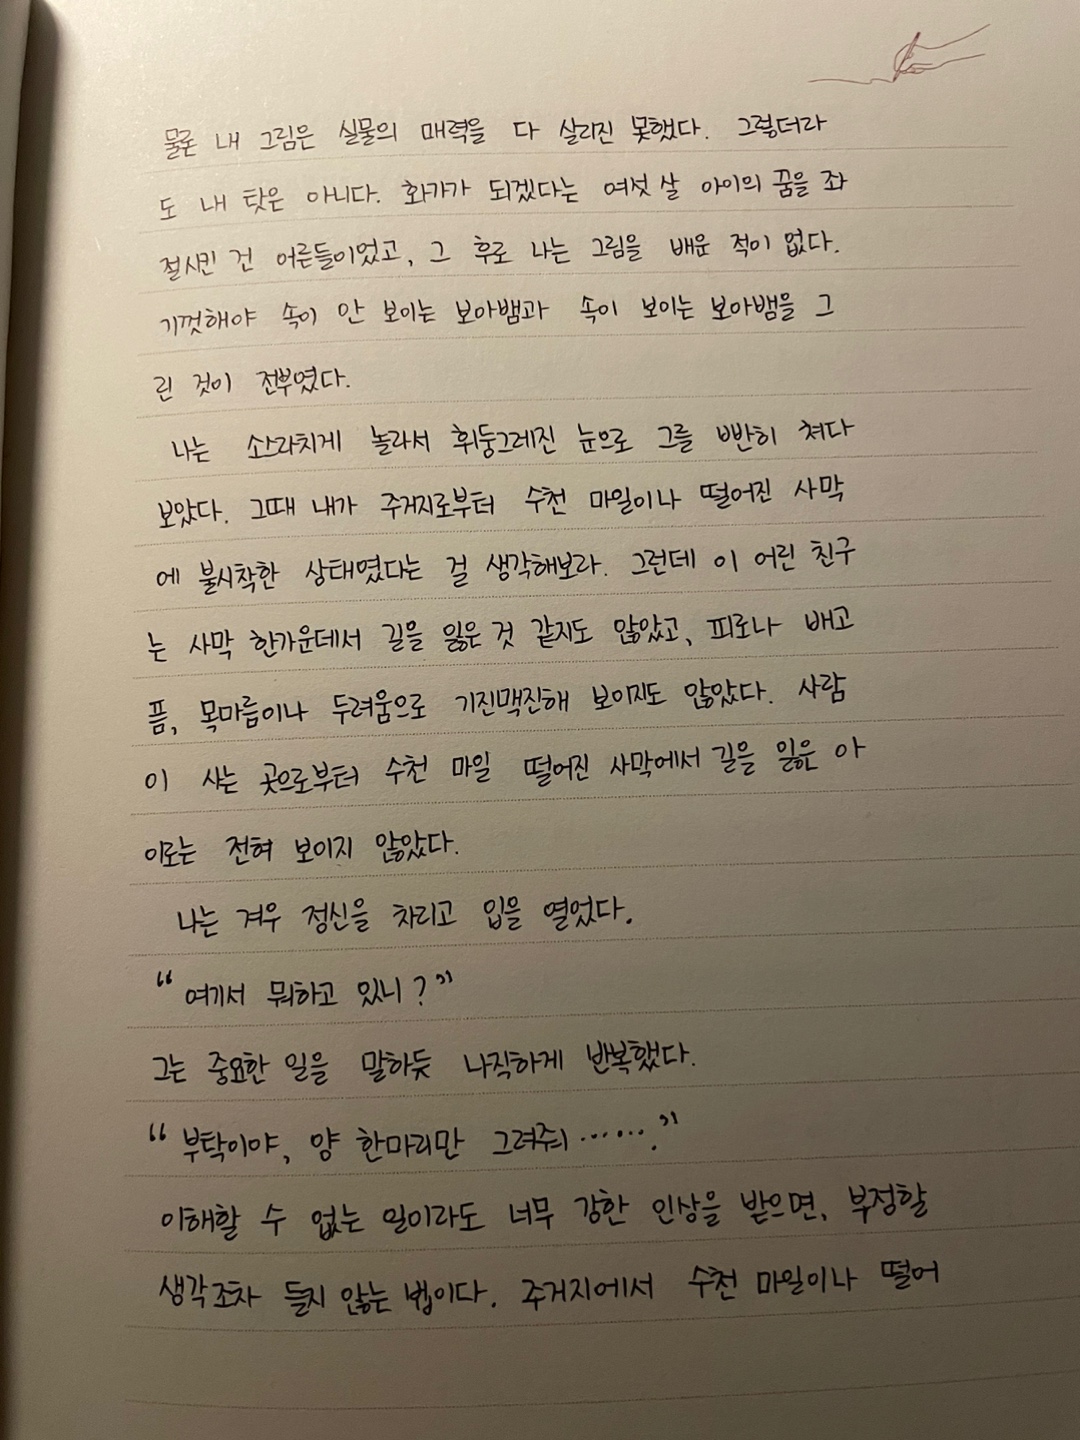 물론 내 그림은 실물의 매력을 다 살리진 못했다. 그렇더라
도 내 탓은 아니다. 화가가 되겠다는 여섯 살 아이의 꿈을 좌
절시킨 건 어른들이었고, 그 후로 나는 그림을 배운 적이 없다.
기껏해야 속이 안 보이는 보아뱀과 속이 보이는 보아뱀을 그
린 것이 전부였다.
나는 소스라치게 놀라서 휘둥그레진 눈으로 그를 빤히 쳐다
보았다. 그때 내가 주거지로부터 수천 마일이나 떨어진 사막
에 불시착한 상태였다는 걸 생각해보라. 그런데 이 어린 친구
는 사막 한가운데서 길을 잃은 것 같지도 않았고, 피로나 배고
픔, 목마름이나 두려움으로 기진맥진해 보이지도 않았다. 사람
이 사는 곳으로부터 수천 마일 떨어진 사막에서 길을 잃은 아
이로는 전혀 보이지 않았다.
나는 겨우 정신을 차리고 입을 열었다.
“여기서 뭐하고 있니?”
그는 중요한 일을 말하듯 나직하게 반복했다.
“부탁이야, 양 한마리만 그려줘…….”
이해할 수 없는 일이라도 너무 강한 인상을 받으면, 부정할
생각조차 들지 않는 법이다. 주거지에서 수천 마일이나 떨어